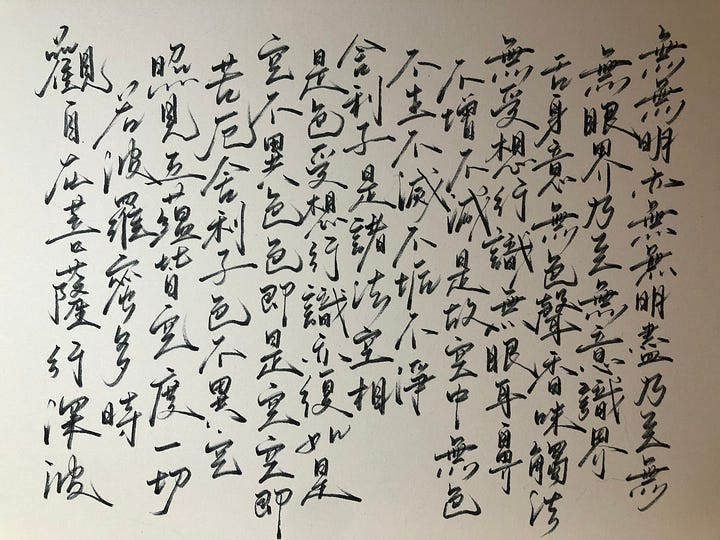 觀自在菩薩行深般
若波羅蜜多時
照見五蘊皆空度一切
苦厄舍利子色不異空
空不異色色即是空空即
是色受想行識亦復如是
舍利子是諸法空相
不生不滅不垢不淨
不增不減是故空中無色
無受想行識無眼耳鼻
舌身意無色聲香味觸法
無眼界乃至無意識界
無無明亦無無明盡乃至無